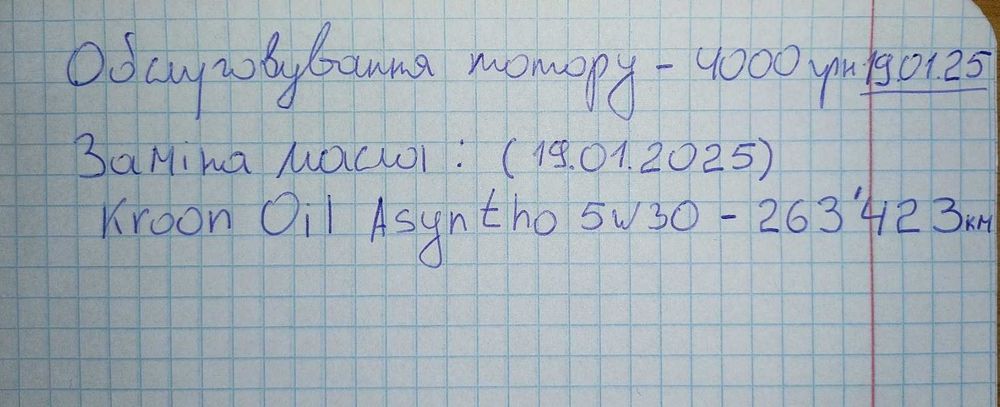 Обслуговування мотору - 4000 грн 19.01.25
Заміна масла : (19.01.2025)
Kroon Oil Asyntho 5w30 - 263'423км